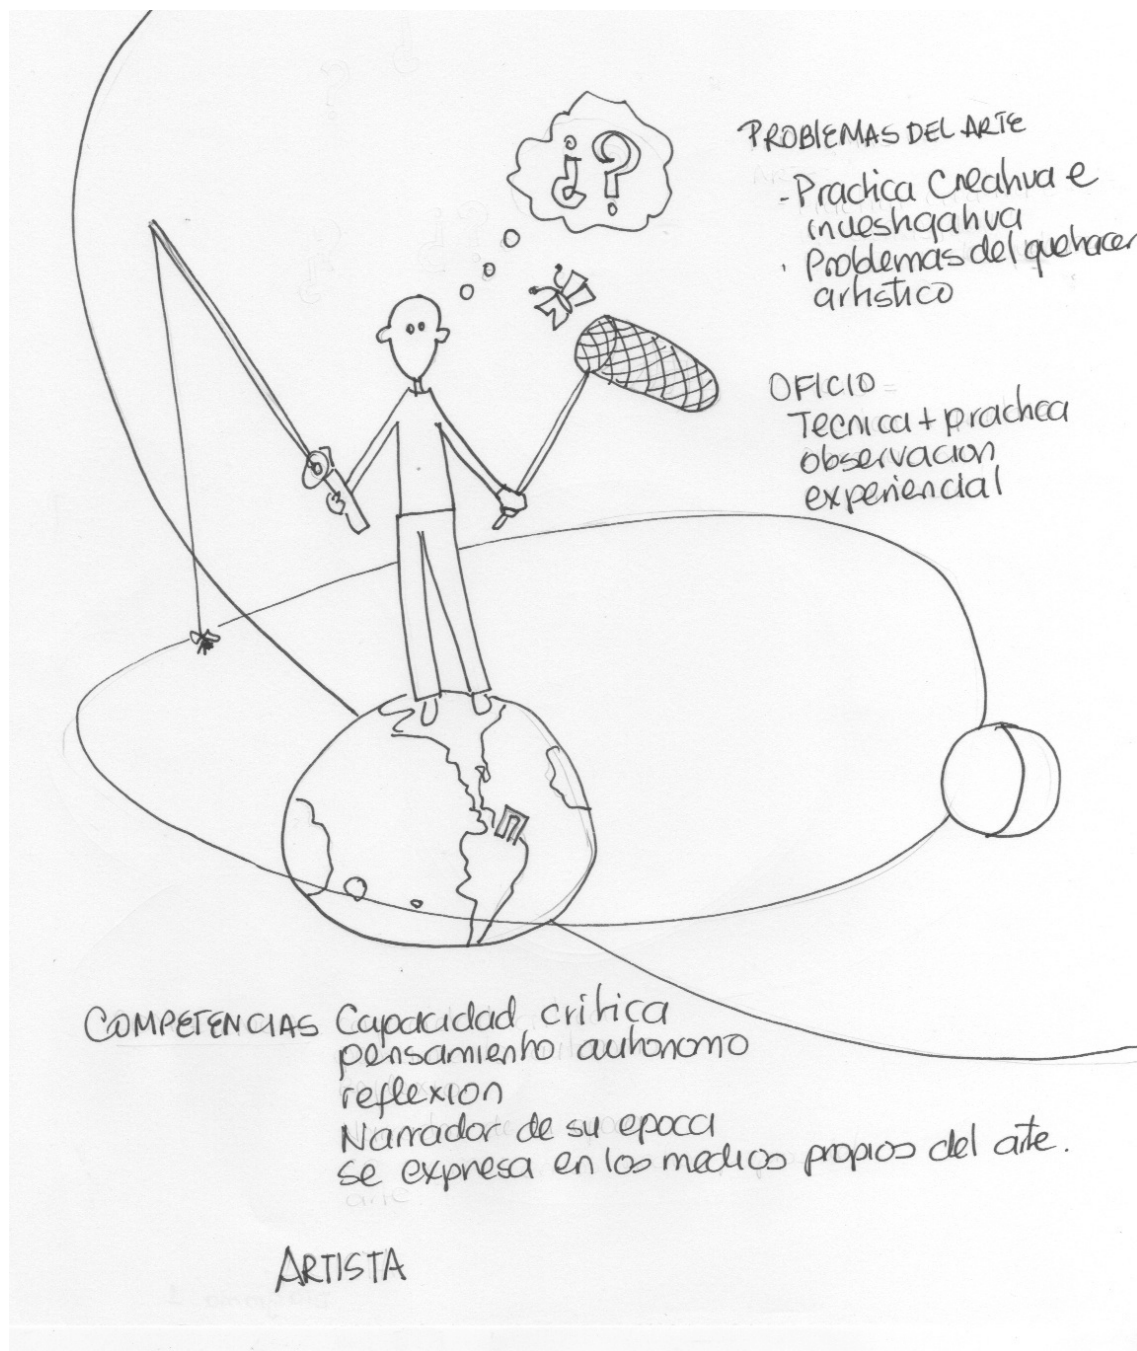 ¿?
PROBLEMAS DEL ARTE
- Practica Creativa e
investigativa
· Problemas del quehacer
artistico
OFICIO
Tecnica + practica
observacion
experiencial
COMPETENCIAS Capacidad critica
pensamiento autonomo
reflexion
Narrador de su epoca
se expresa en los medios propios del arte.
ARTISTA